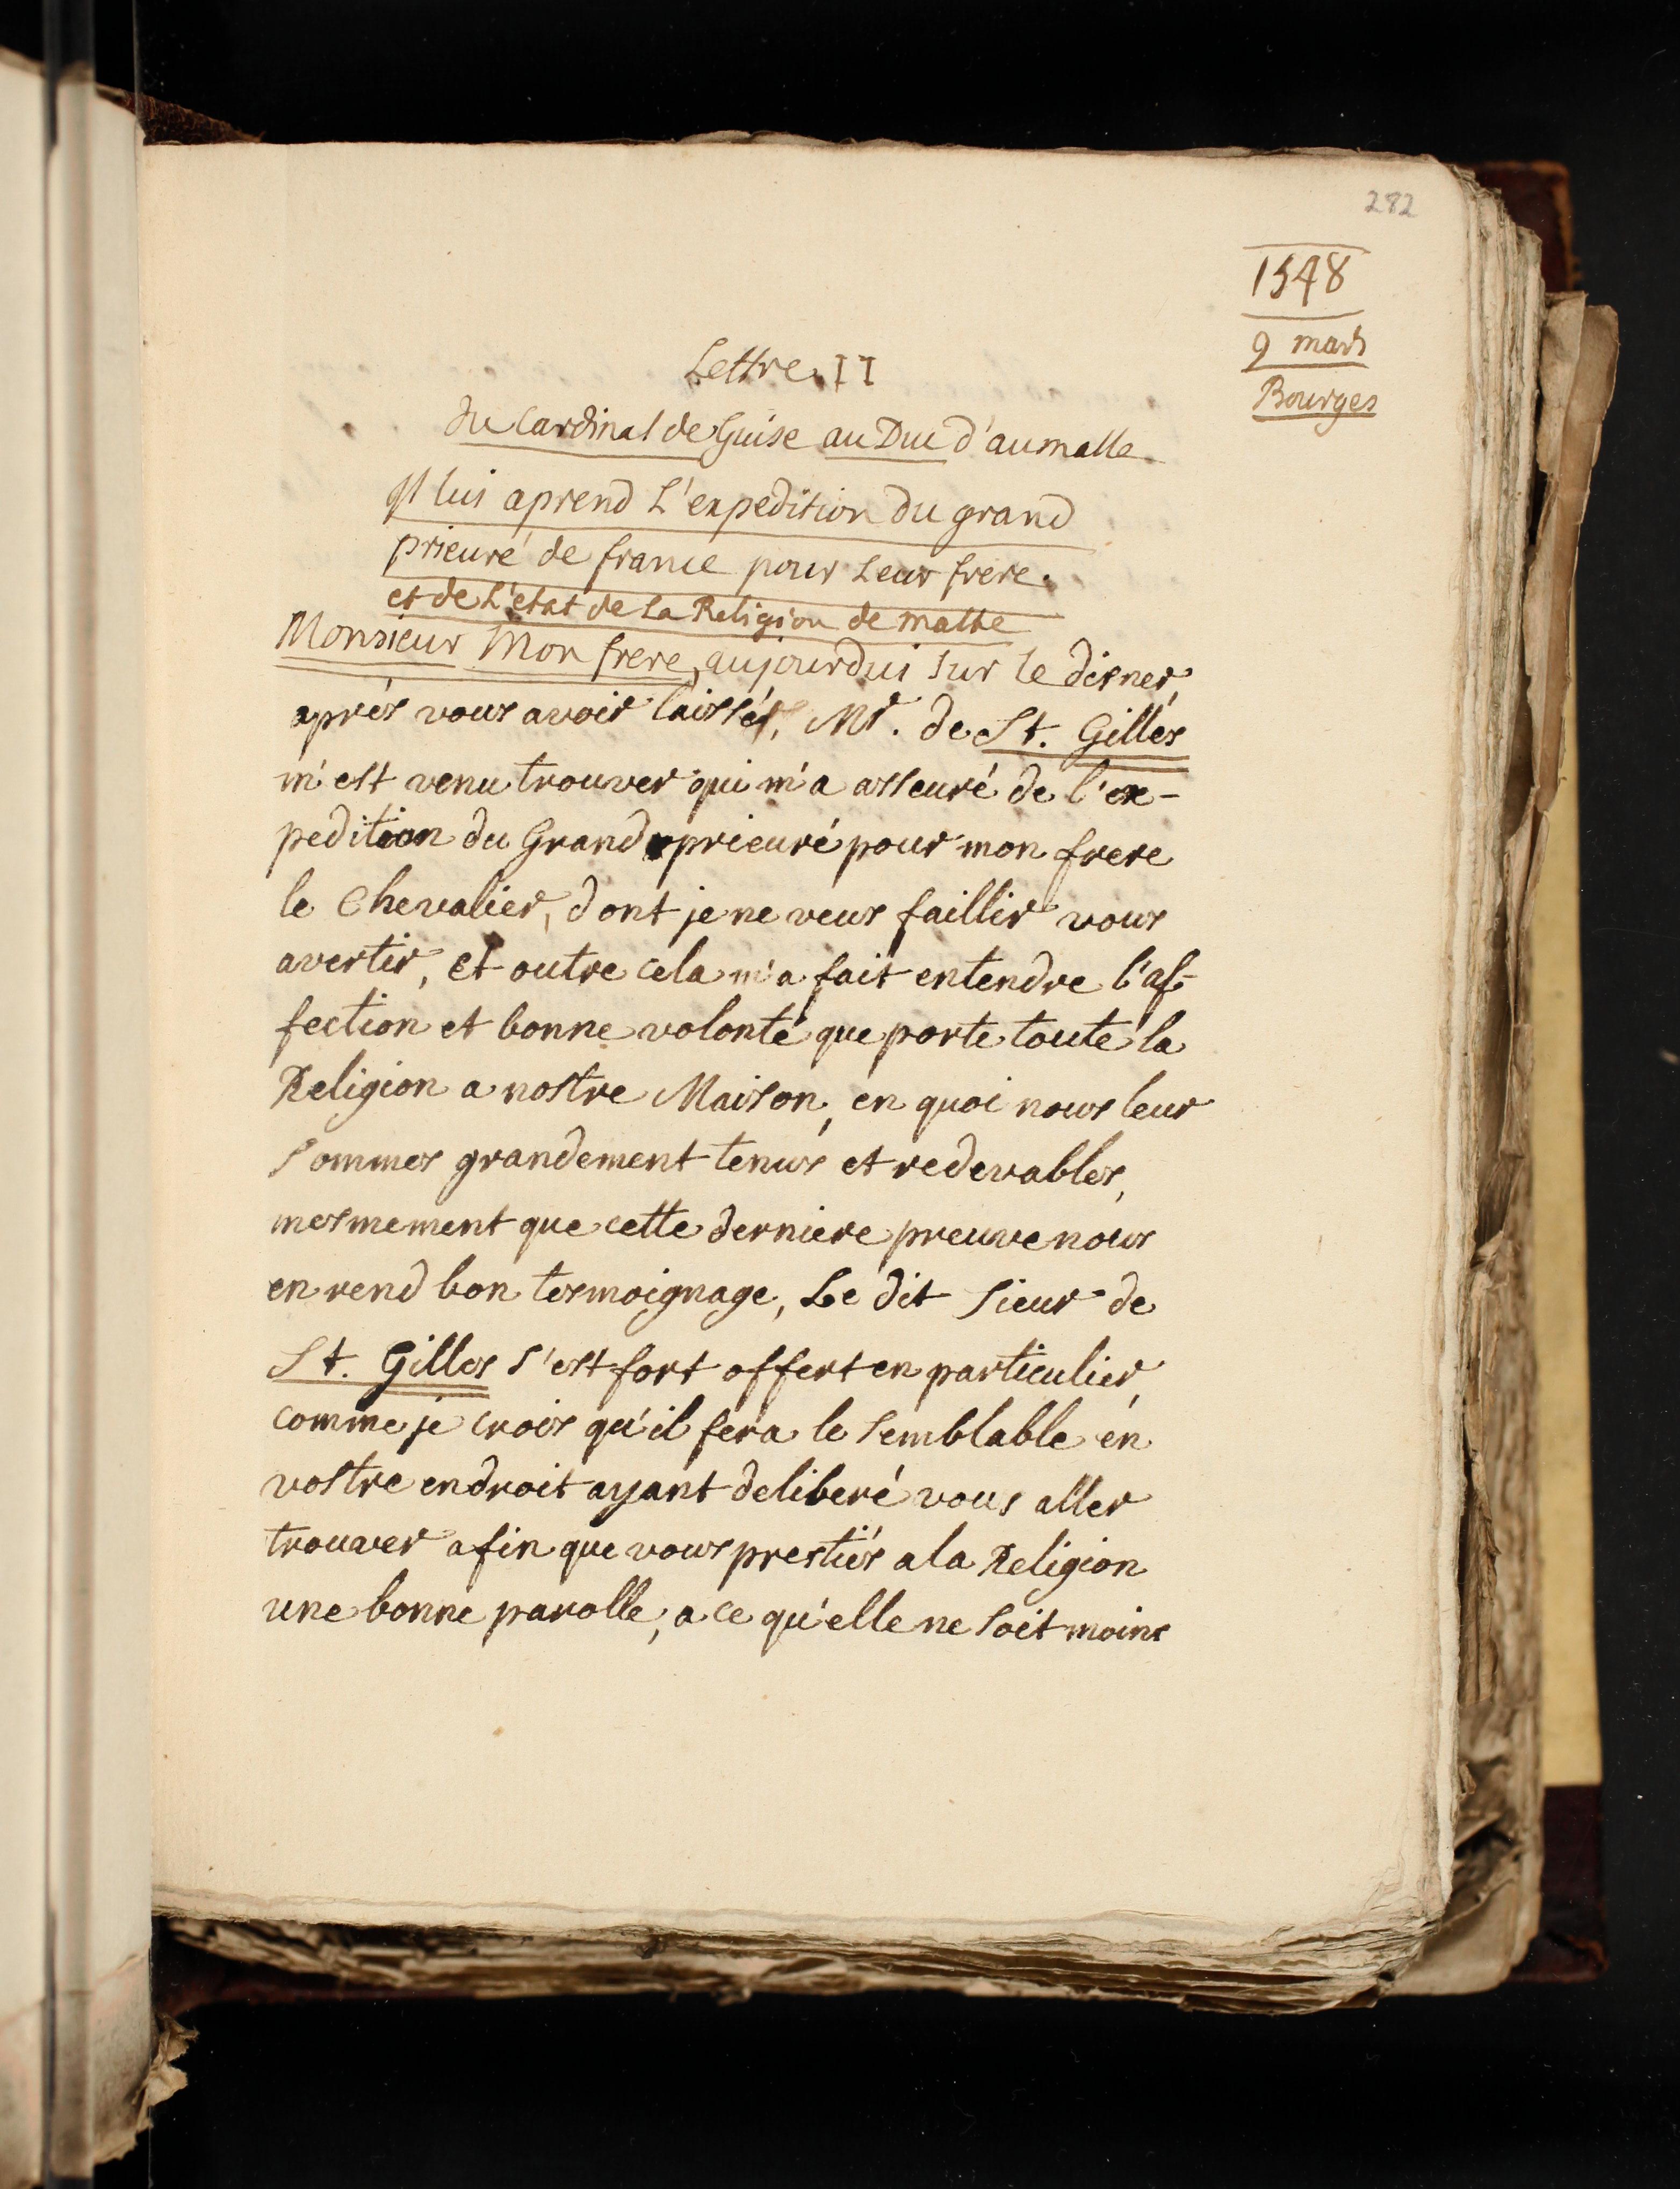 282
1548
9 mars
Bourges
Lettre II
du Cardinal de Guise au Duc d'aumalle
Il lui aprend L'expedition du grand
prieuré de france pour Leur frere.
et de L'etat de la Religion de malthe
Monsieur Mon frere, aujourdui sur le disner,
aprés vous avoir laissé, Mr. de St. Gilles
m'est venu trouver qui m'a asseuré de l'ex-
pedition du Grand prieuré pour mon frere
le Chevalier, dont je ne veus faillir vous
avertir, et outre cela m'a fait entendre l'af-
fection et bonne volonté que porte toute la
Religion a nostre Maison, en quoi nous leur
sommes grandement tenus et redevables,
mesmement que cette derniere preuve nous
en rend bon tesmoignage, Le dit Sieur de
St. Gilles s'est fort offert en particulier,
comme je crois qu'il fera le semblable en
vostre endroit ayant deliberé vous aller
trouver afin que vous prestiés a la Religion
une bonne parolle, a ce qu'elle ne soit moins